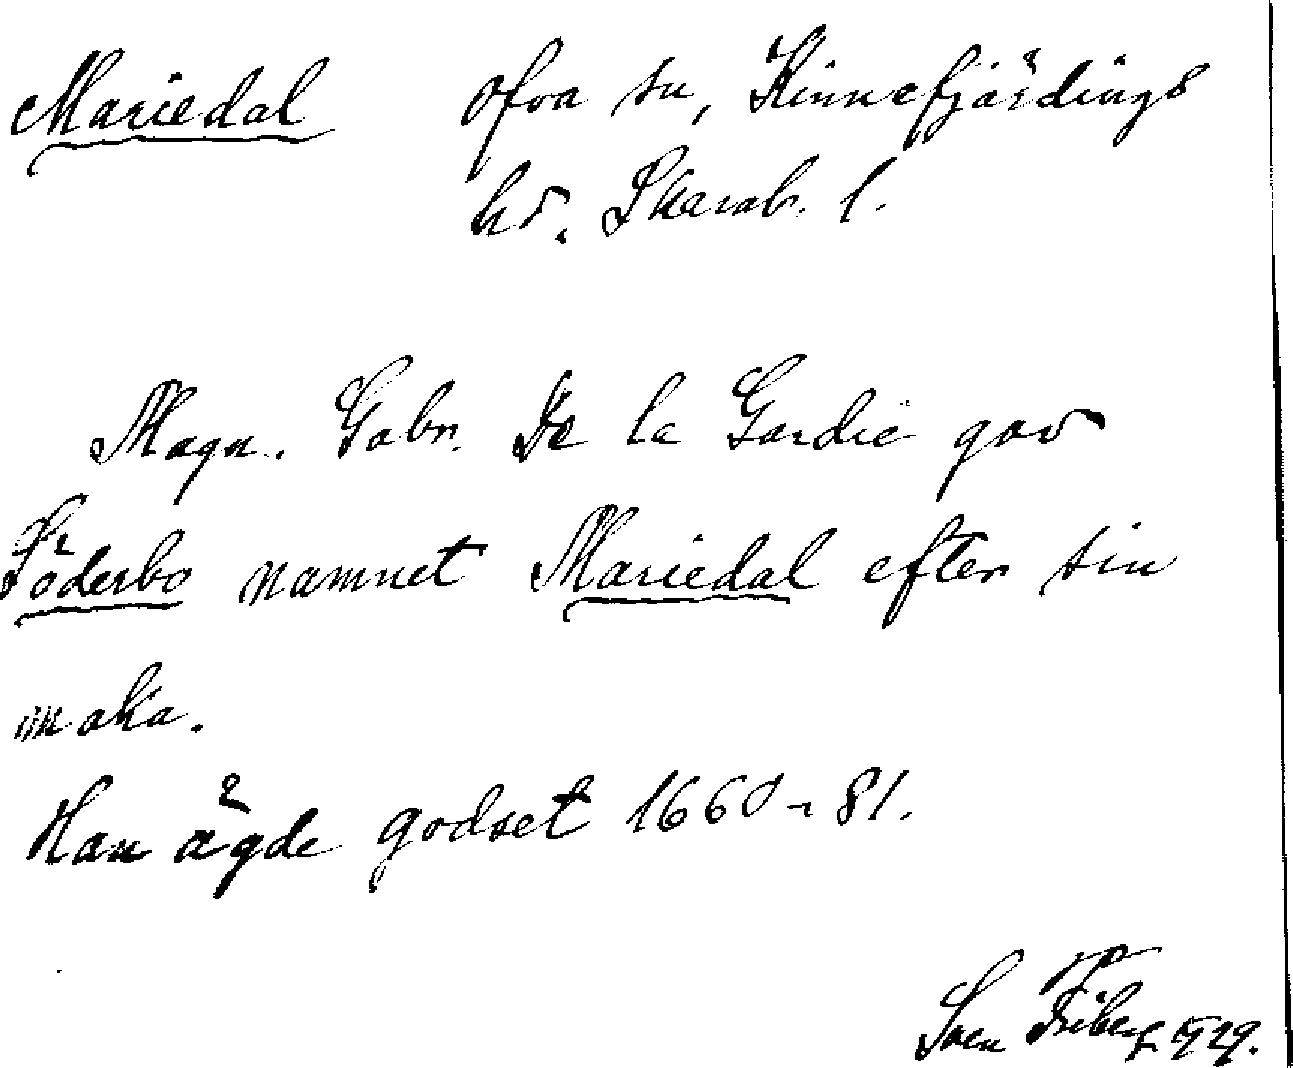 Mariedal Ofva sn, Kinnefjärdings
hd. Skarab. l.
Magn. Gabr. De la Gardie gav
Söderbo namnet Mariedal efter sin
maka.
Han ägde godset 1660-81.
Sven Friberg 1929.